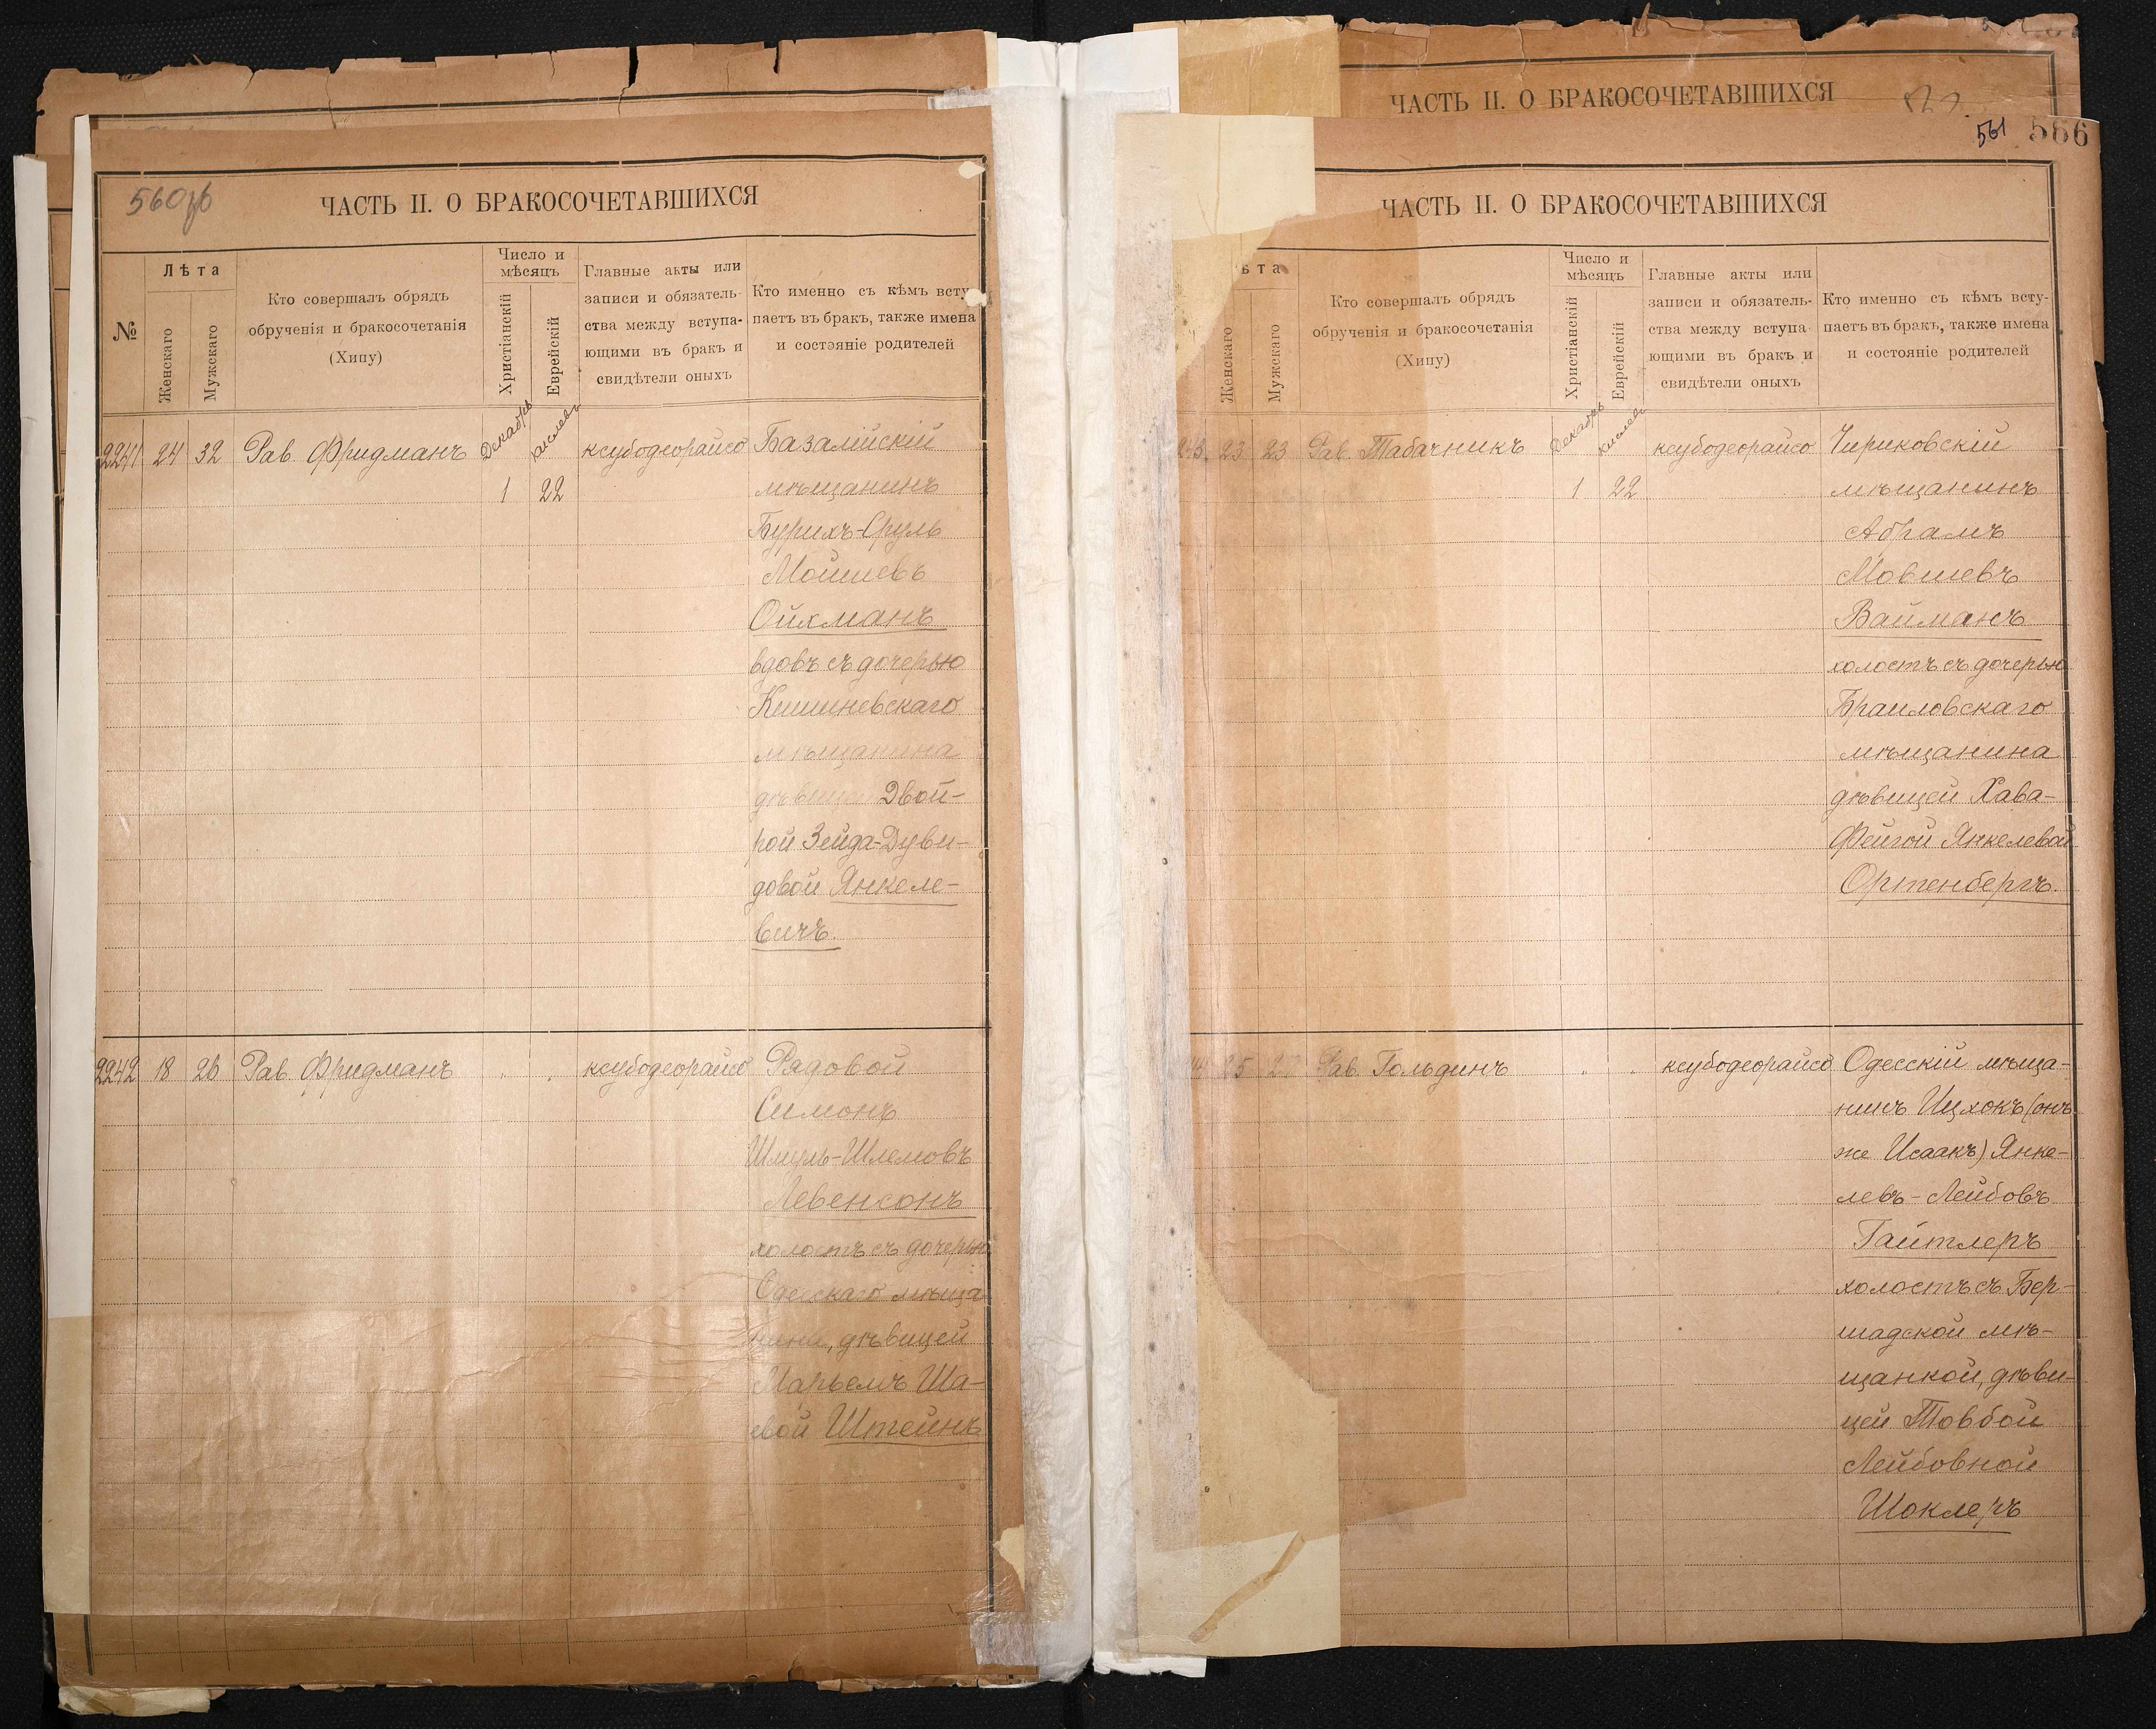 560об
ЧАСТЬ II. О БРАКОСОЧЕТАВШИХСЯ
№
Лѣта
Женскаго
Мужскаго
Кто совершалъ обрядъ
обрученія и бракосочетанія
(Хипу)
Число и
мѣсяцъ
Христіанскій
Еврейскій
Главные акты или
записи и обязатель-
ства между вступа-
ющими въ бракъ и
свидѣтели оныхъ
Кто именно съ кѣмъ всту-
паетъ въ бракъ, также имена
и состояніе родителей
2241 24 32 Рав. Фридманъ Декабрь кислевъ ксубодеорайсо Базалійскій
1 22 мѣщанинъ
Бурихъ-Сруль
Мошшевъ
Ойхманъ
вдовъ съ дочерью
Кишиневскаго
мѣщанина
дѣвицей Двой-
рой Зейда-Дуви-
довой Янкеле-
вичъ.
2242 18 26 Рав. Фридманъ " " ксубодеорайсо Рядовой
Симонъ
Шмуль-Шлемовъ
Левенсонъ
холостъ съ дочерью
Одесскаго мѣща-
нина, дѣвицей
Марьемъ Ша-
евой Штейнъ
ЧАСТЬ II. О БРАКОСОЧЕТАВШИХСЯ
561 566
ЧАСТЬ II. О БРАКОСОЧЕТАВШИХСЯ
ѣта
Женскаго
Мужскаго
Кто совершалъ обрядъ
обрученія и бракосочетанія
(Хипу)
Число и
мѣсяцъ
Христіанскій
Еврейскій
Главные акты или
записи и обязатель-
ства между вступа-
ющими въ бракъ и
свидѣтели оныхъ
Кто именно съ кѣмъ всту-
паетъ въ бракъ, также имена
и состояніе родителей
243. 23 23 Рав. Табачникъ Декабрь кислевъ ксубодеорайсо Чириковскій
1 22 мѣщанинъ
Абрамъ
Мовшевъ
Вайманъ
холостъ съ дочерью
Браиловскаго
мѣщанина
дѣвицей Хава-
Фейгой Янкелевой
Ортенбергъ.
44 25 27 Рав. Гольдинъ " " ксубодеорайсо Одесскій мѣща-
нинъ Ицхокъ (онъ
же Исаакъ) Янке-
левъ-Лейбовъ
Гайтлеръ
холостъ съ Бер-
шадской мѣ-
щанкой, дѣви-
цей Товбой
Лейбовной
Шоклеръ